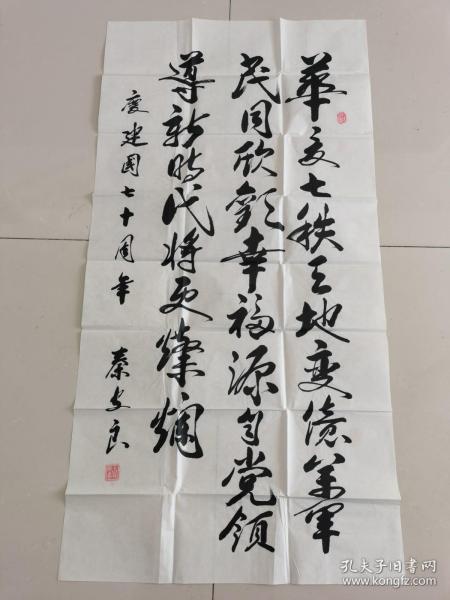 華夏七秩天地變億万軍
民同欣歡幸福源自党領
導新時代將更燦爛
慶建國七十周年
秦安良
孔夫子旧书网
www.kongfz.com